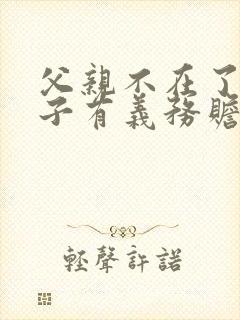 父親不在了
子有義務贍
輕聲許諾